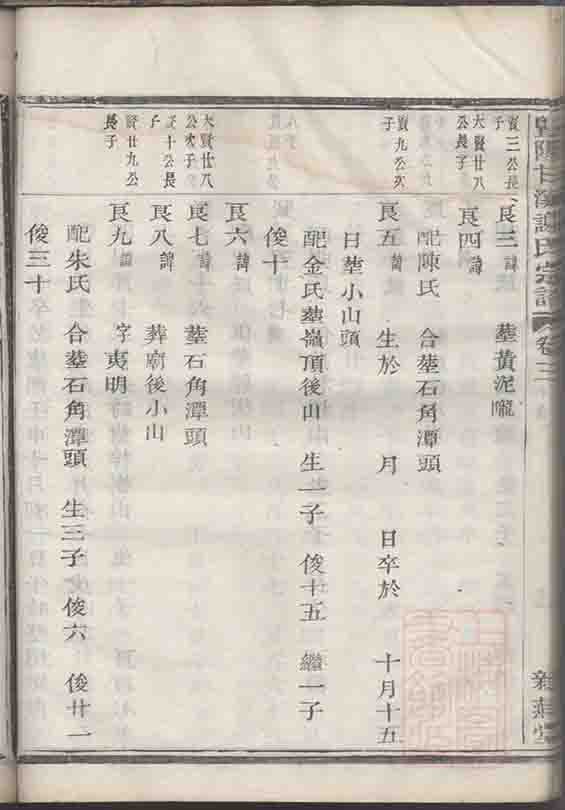 陽甘溪謝氏宗譜 卷三
賢三公長子
良三諱 塟黃泥嚨
大賢廿八公長子
良四諱
配陳氏 合塟石角潭頭
賢九公次子
良五諱 生於 月 日卒於 十月十五
日塟小山頭
配金氏塟嶺頂後山 生一子 俊十五 繼一子
俊十
良六諱
大賢廿八公次子
良七諱 塟石角潭頭
賢十公長子
良八諱 葬廟後小山
大賢廿九公長子
良九諱 字夷明
配朱氏 合塟石角潭頭 生三子 俊六 俊廿一
俊三十